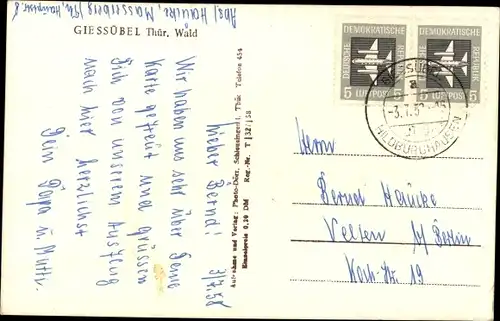 Abs/ Haucke, Masserberg/Th., Hauptstr. 8
GIESSÜBEL Thür. Wald
3/7.58
Lieber Bernd!
Wir haben uns sehr über Deine
Karte gefreut und grüssen
Dich von unserem Ausflug
nach hier herzlichst
Dein Papa u. Mutti.
Aufnahme und Verlag: Photo-Dörr, Schleusingen i. Thür. Telefon 454
Einzelpreis 0,20 DM Reg.-Nr. T 1327/58
DEUTSCHE DEMOKRATISCHE REPUBLIK
5 LUFTPOST 5
DEUTSCHE DEMOKRATISCHE REPUBLIK
5 LUFTPOST 5
GIESSÜBEL
a
HILDBURGHAUSEN
Herrn
Bernd Haucke
Velten b/Berlin
Koch-Str. 19